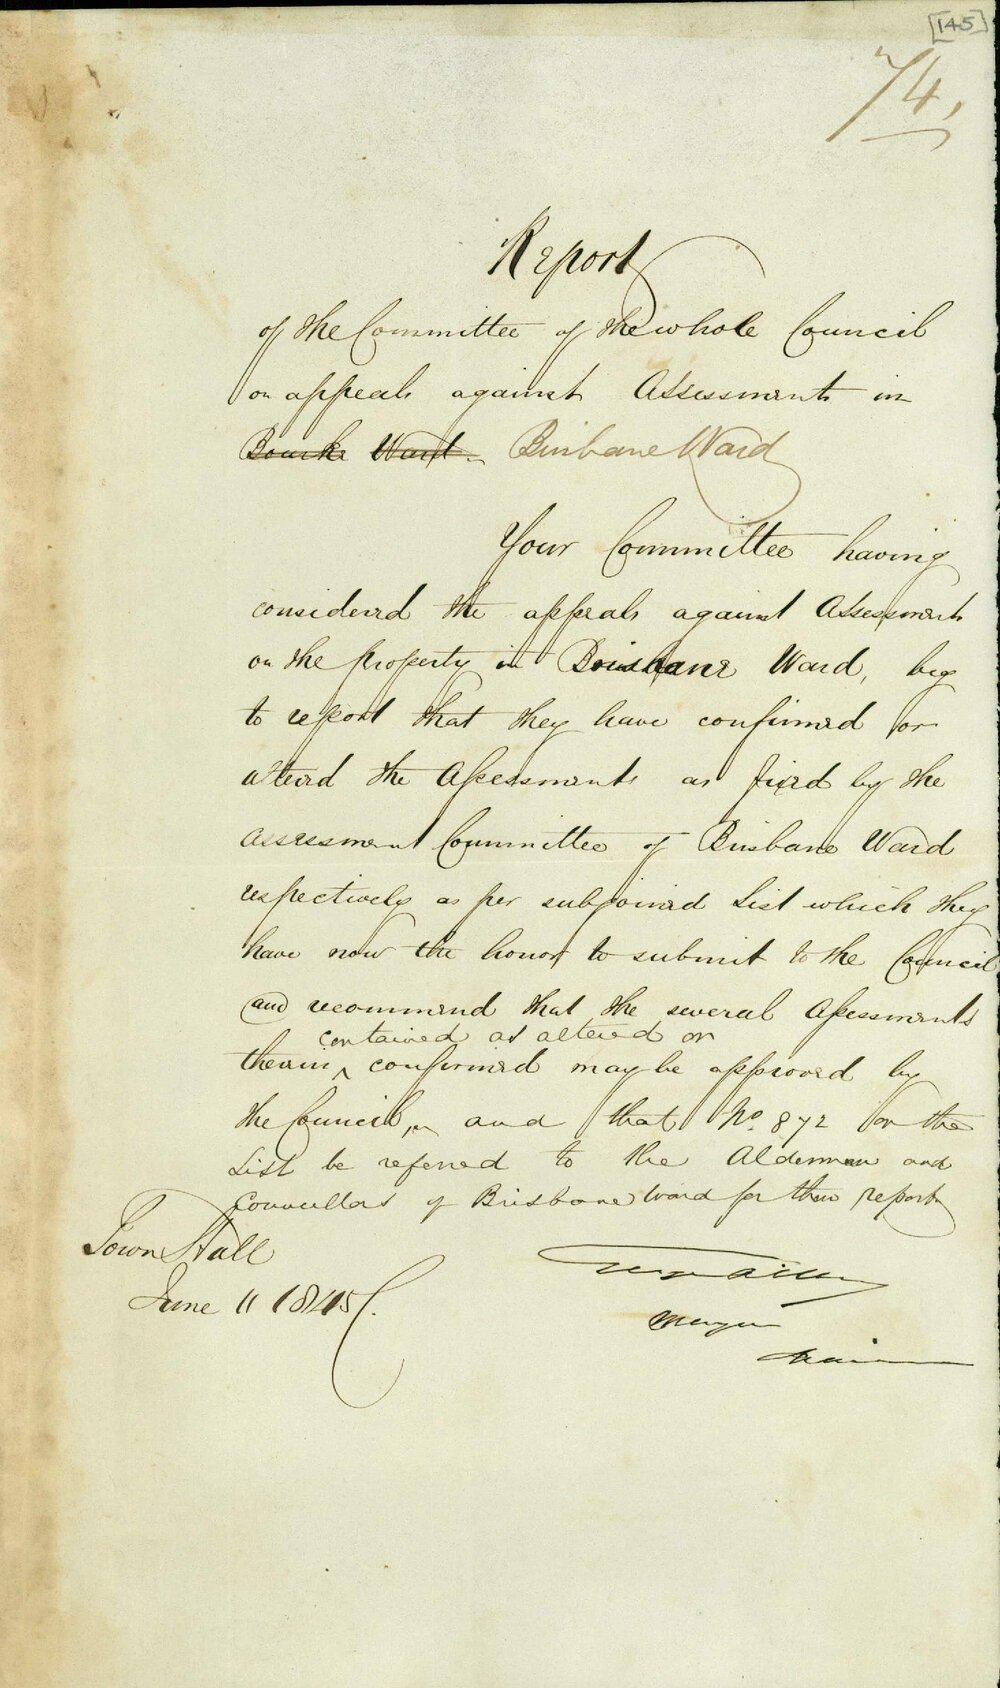 [145]
74,
Report
of the Committee of the whole Council
on appeals against Assessments in
Bourke Ward. Brisbane Ward
Your Committee having
considered the appeals against Assessments
on the property in Brisbane Ward, beg
to report that they have confirmed or
altered the Assessments as fixed by the
assessment Committee of Brisbane Ward
respectively as per subjoined List which they
have now the honor to submit to the Council
and recommend that the several Assessments
contained as altered or
therein ^ confirmed may be approved by
the Council, and that No. 872 on the
List be referred to the Aldermen and
Councillors of Brisbane Ward for their report
Town Hall
June 11 1845.
Mayor
Chairman